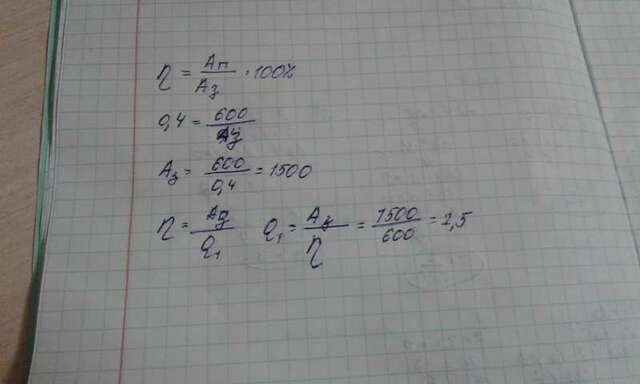 η = Aп/Aз · 100%
0,4 = 600/Aз
Aз = 600/0,4 = 1500
η = Aд/Q₁ Q₁ = Aз/η = 1500/600 = 2,5